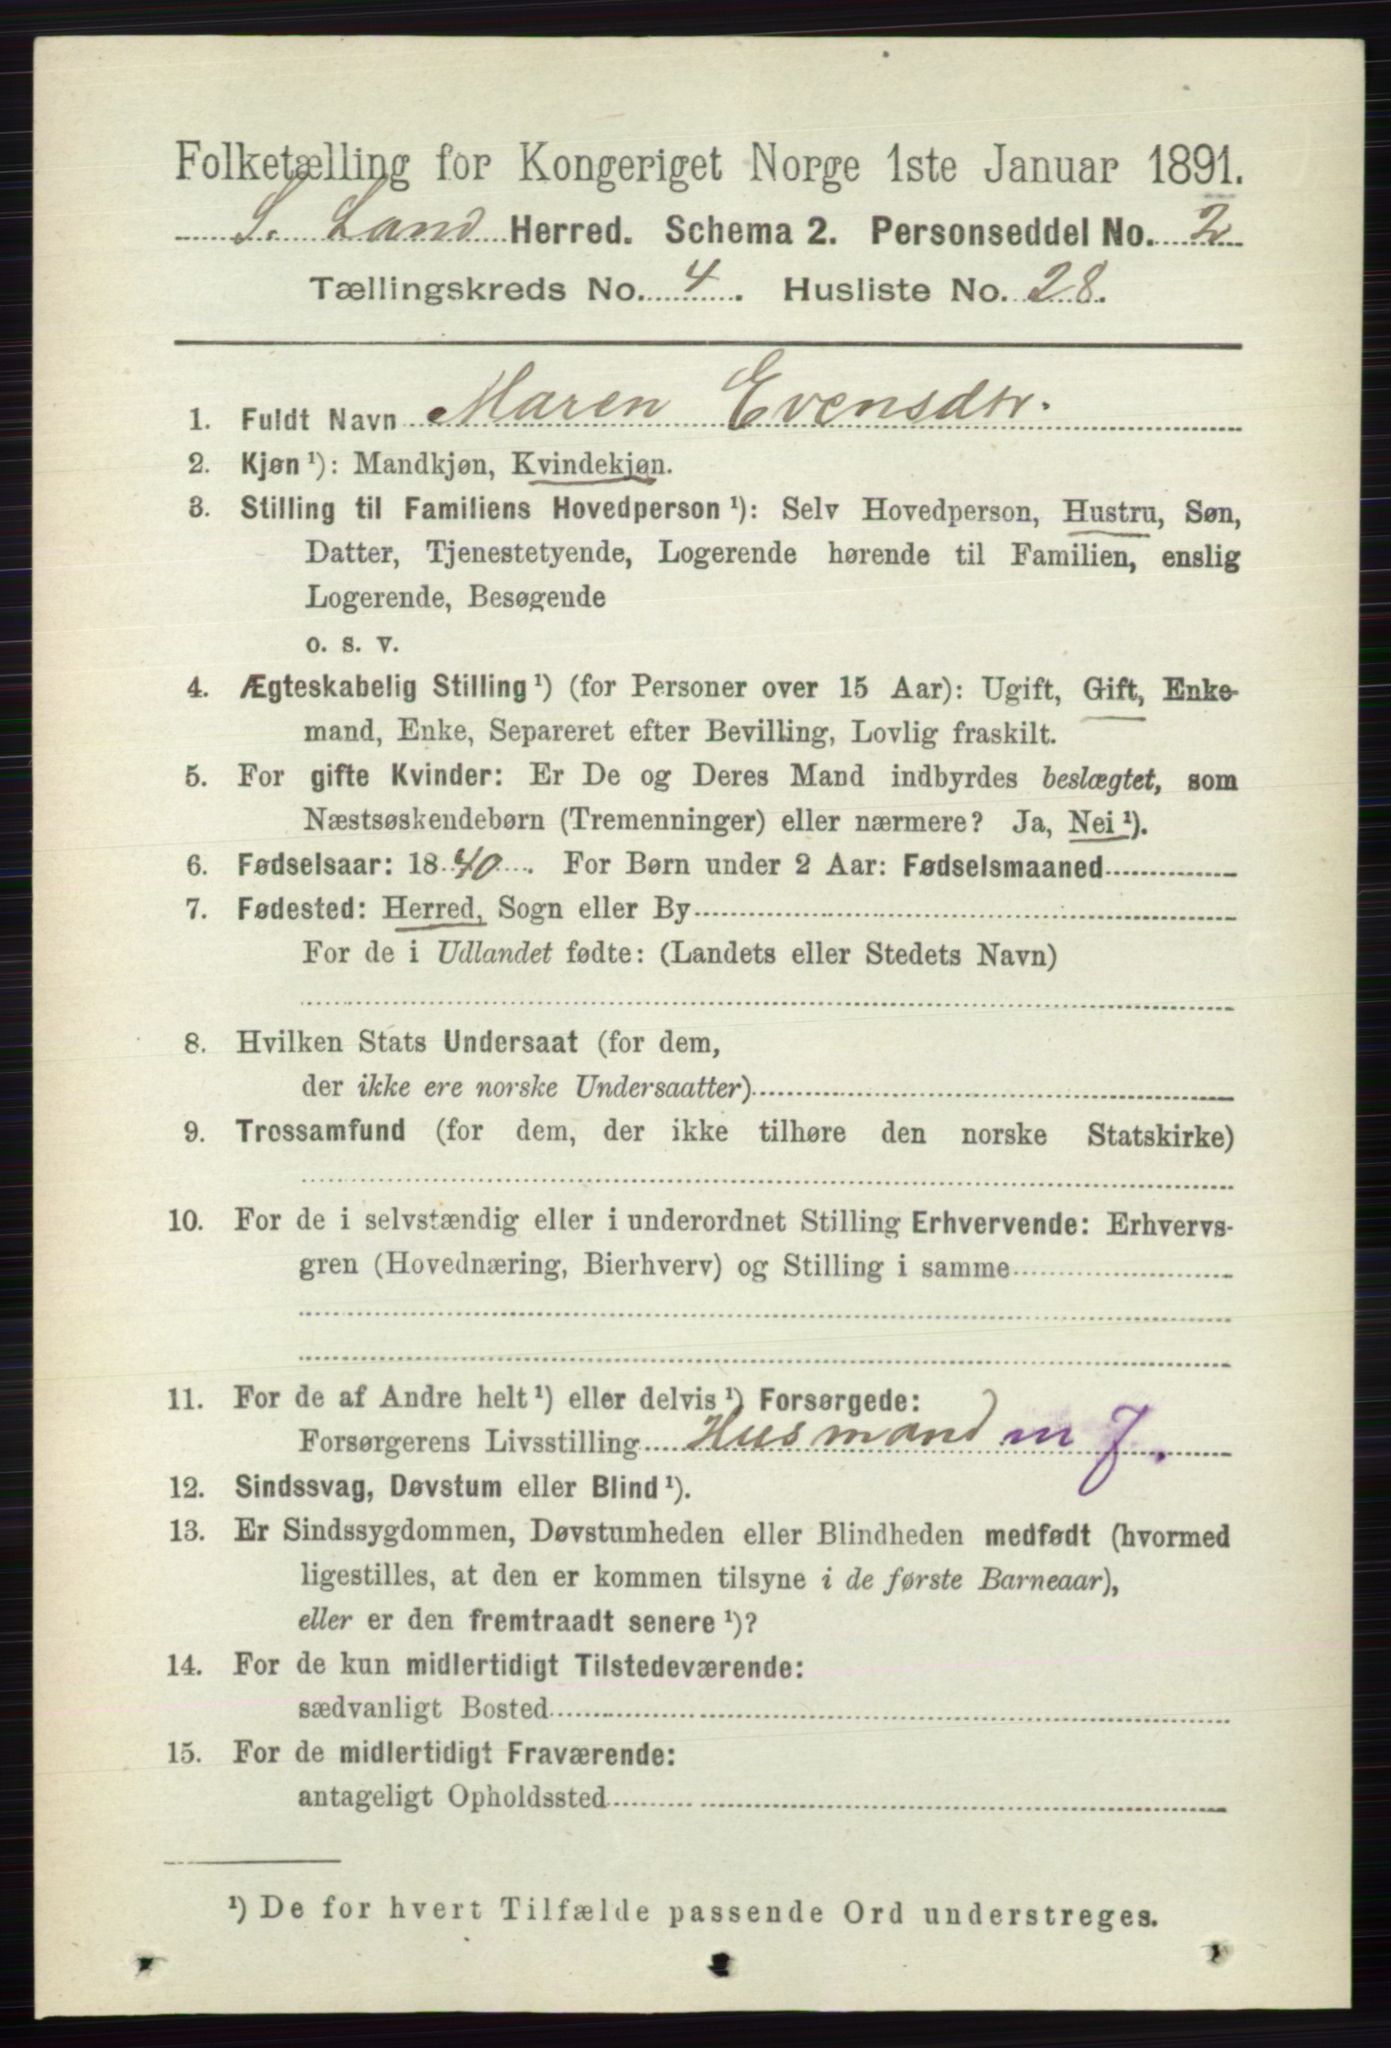 Folketælling for Kongeriget Norge 1ste Januar 1891.
S. Land Herred. Schema 2. Personseddel No. 2
Tællingskreds No. 4. Husliste No. 28.
1. Fuldt Navn Maren Evensdtr.
2. Kjøn¹): Mandkjøn, Kvindekjøn.
3. Stilling til Familiens Hovedperson¹): Selv Hovedperson, Hustru, Søn,
Datter, Tjenestetyende, Logerende hørende til Familien, enslig
Logerende, Besøgende
o. s. v.
4. Ægteskabelig Stilling¹) (for Personer over 15 Aar): Ugift, Gift, Enke-
mand, Enke, Separeret efter Bevilling, Lovlig fraskilt.
5. For gifte Kvinder: Er De og Deres Mand indbyrdes beslægtet, som
Næstsøskendebørn (Tremenninger) eller nærmere? Ja, Nei¹).
6. Fødselsaar: 1840. For Børn under 2 Aar: Fødselsmaaned
7. Fødested: Herred, Sogn eller By
For de i Udlandet fødte: (Landets eller Stedets Navn)
8. Hvilken Stats Undersaat (for dem,
der ikke ere norske Undersaatter)
9. Trossamfund (for dem, der ikke tilhøre den norske Statskirke)
10. For de i selvstændig eller i underordnet Stilling Erhvervende: Erhvervs-
gren (Hovednæring, Bierhverv) og Stilling i samme
11. For de af Andre helt¹) eller delvis¹) Forsørgede:
Forsørgerens Livsstilling Husmand m J.
12. Sindssvag, Døvstum eller Blind¹).
13. Er Sindssygdommen, Døvstumheden eller Blindheden medfødt (hvormed
ligestilles, at den er kommen tilsyne i de første Barneaar),
eller er den fremtraadt senere¹)?
14. For de kun midlertidigt Tilstedeværende:
sædvanligt Bosted
15. For de midlertidigt Fraværende:
antageligt Opholdssted
¹) De for hvert Tilfælde passende Ord understreges.